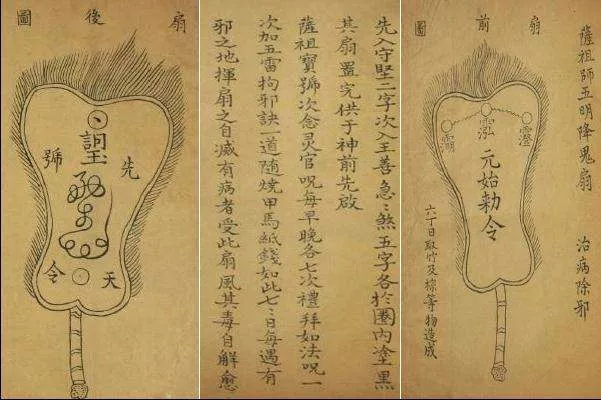 薩祖師五明降鬼扇 治病除邪
扇前圖
元始勅令
六丁日取竹及棕等物造成
先入守堅二字次入王善急〻煞五字各於圈內塗黑
其扇置完供于神前先啟
薩祖寶號次念灵官咒每早晚各七次禮拜如法咒一
次加五雷拘邪訣一道隨燒甲馬紙錢如此七〻日每遇有
邪之地揮扇之自滅有病者受此扇風其毒自解愈
扇後圖
先天號令